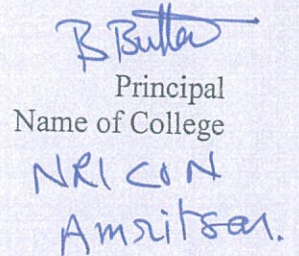 B Butter
Principal
Name of College
NRI CON
Amritsar.